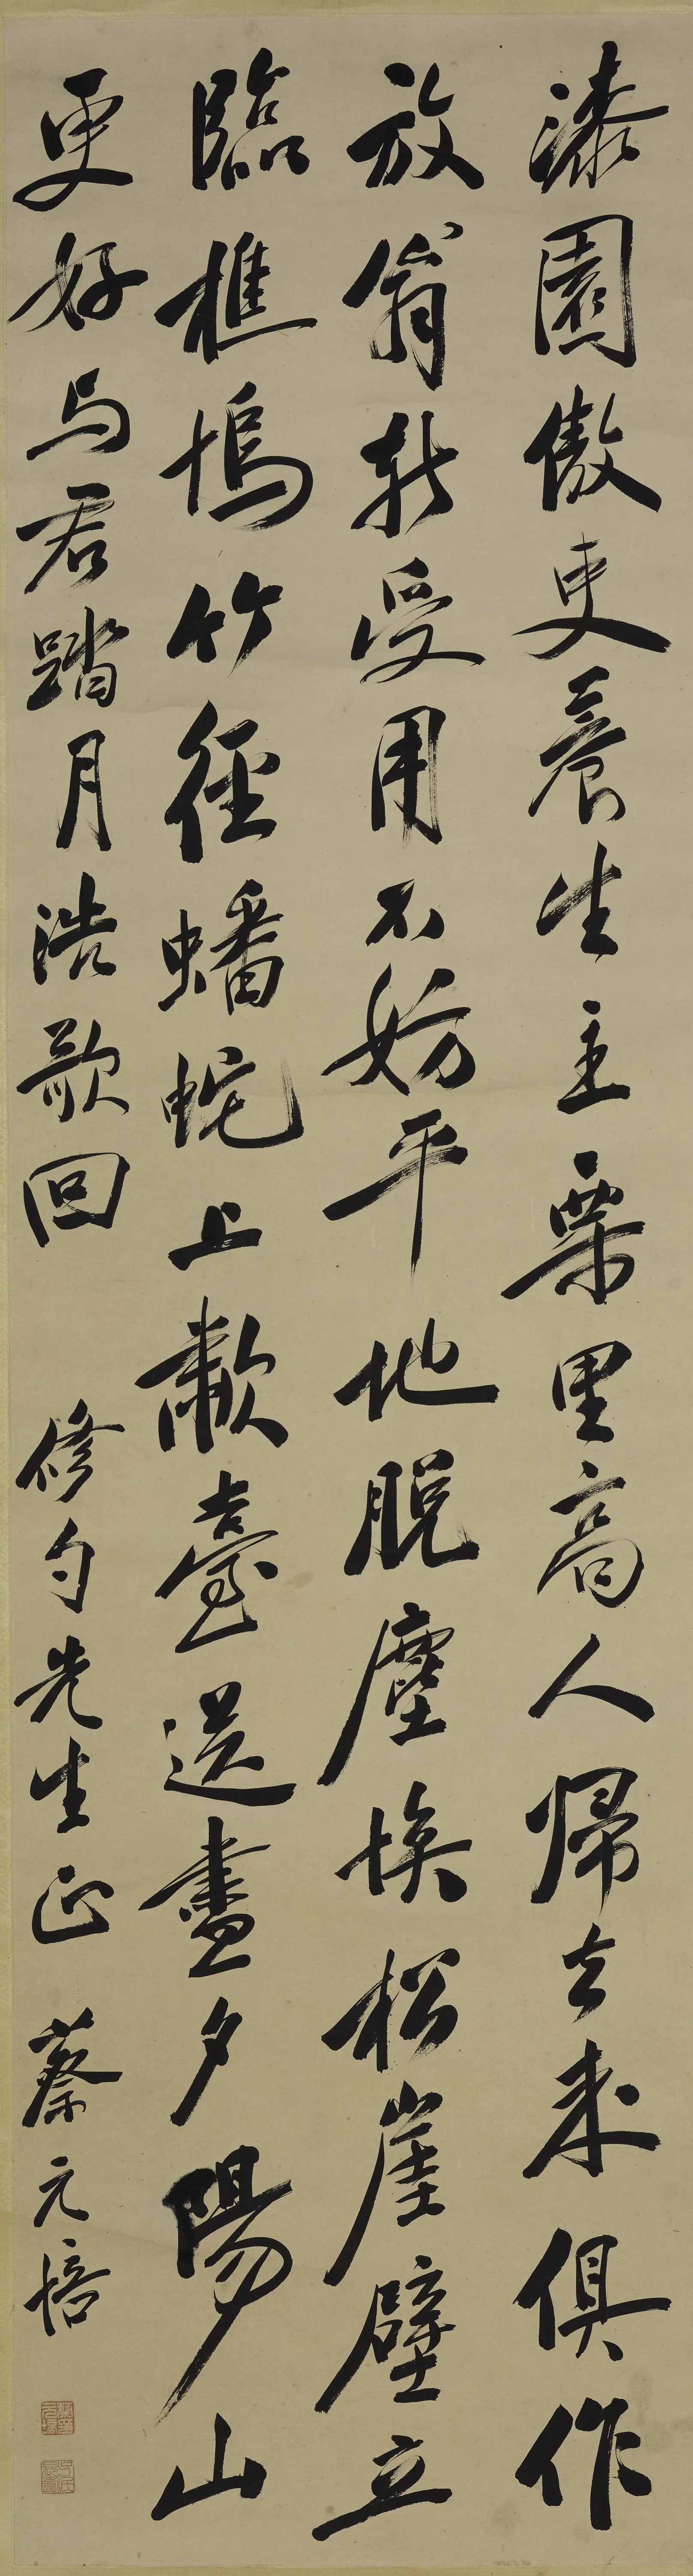 漆園傲吏養生主栗里高人歸去來俱作
放翁新受用不妨平地脫塵埃松崖壁立
臨樵塢竹徑蟠蛇上嫩臺送盡夕陽山
更好与君踏月浩歌回
修勻先生正
蔡元培